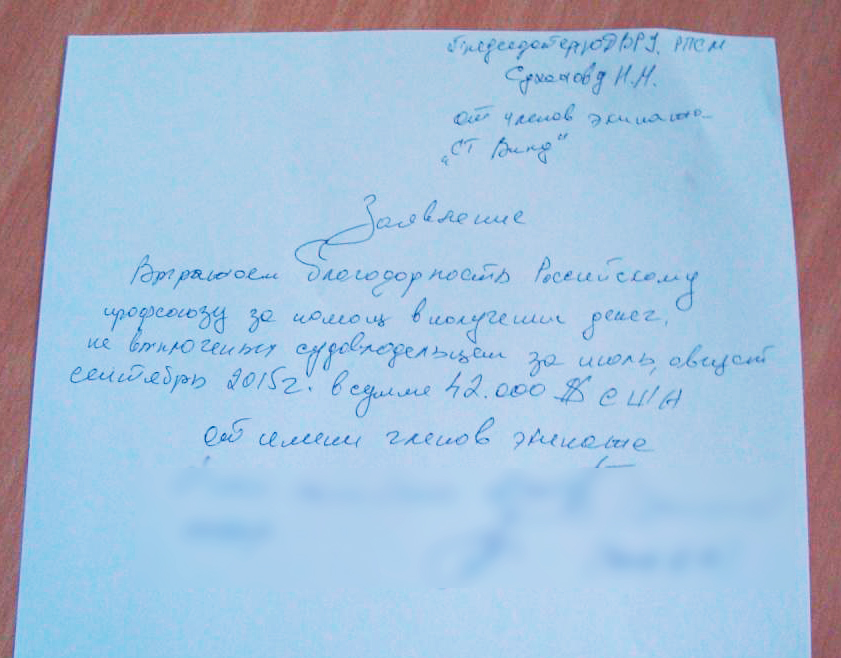 Председателю ДВРУ. РПСМ
Суханову Н.Н.
от членов экипажа
„СТ Винд"
Заявление
Выражаем благодарность Российскому
профсоюзу за помощ в получении денег,
не выплоченых судовладельцам за июль, август
сентябрь 2015г. в сумме 42.000 $ США
от имени членов экипажа